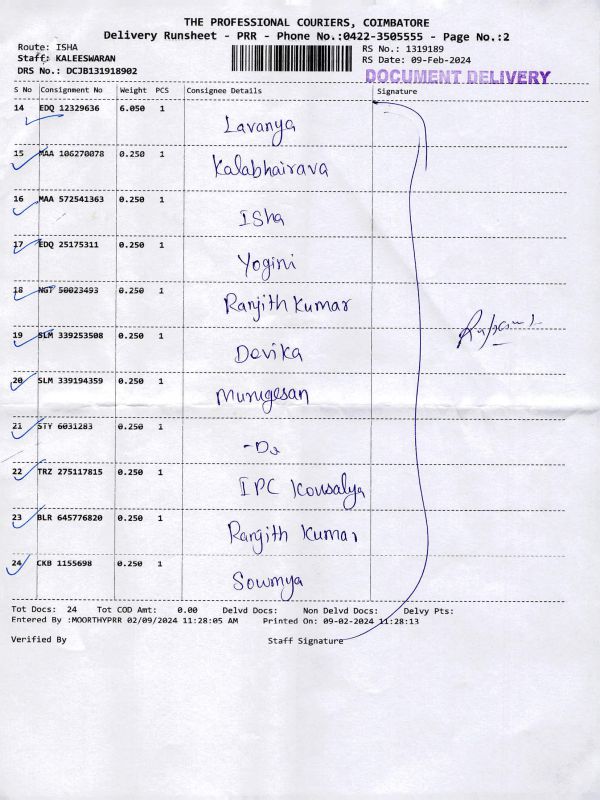 THE PROFESSIONAL COURIERS, COIMBATORE
Delivery Runsheet - PRR - Phone No.:0422-3505555 - Page No.:2
Route: ISHA
RS No.: 1319189
Staff: KALEESWARAN
RS Date: 09-Feb-2024
DRS No.: DCJB131918902
DOCUMENT DELIVERY
S No Consignment No Weight PCS Consignee Details Signature
14 EDQ 12329636 6.050 1
Lavanya
15 MAA 106270078 0.250 1
Kalabhairava
16 MAA 572541363 0.250 1
ISha
17 EDQ 25175311 0.250 1
Yogini
18 NGT 50023493 0.250 1
Ranjith Kumar
19 SLM 339253508 0.250 1
Devika
20 SLM 339194359 0.250 1
Murugesan
21 STY 6031283 0.250 1
22 TRZ 275117815 0.250 1
IPC Kousalya
23 BLR 645776820 0.250 1
Ranjith Kumar
24 CKB 1155698 0.250 1
Sowmya
Tot Docs: 24 Tot COD Amt: 0.00 Delvd Docs: Non Delvd Docs: Delvy Pts:
Entered By :MOORTHYPRR 02/09/2024 11:28:05 AM Printed On: 09-02-2024 11:28:13
Verified By Staff Signature